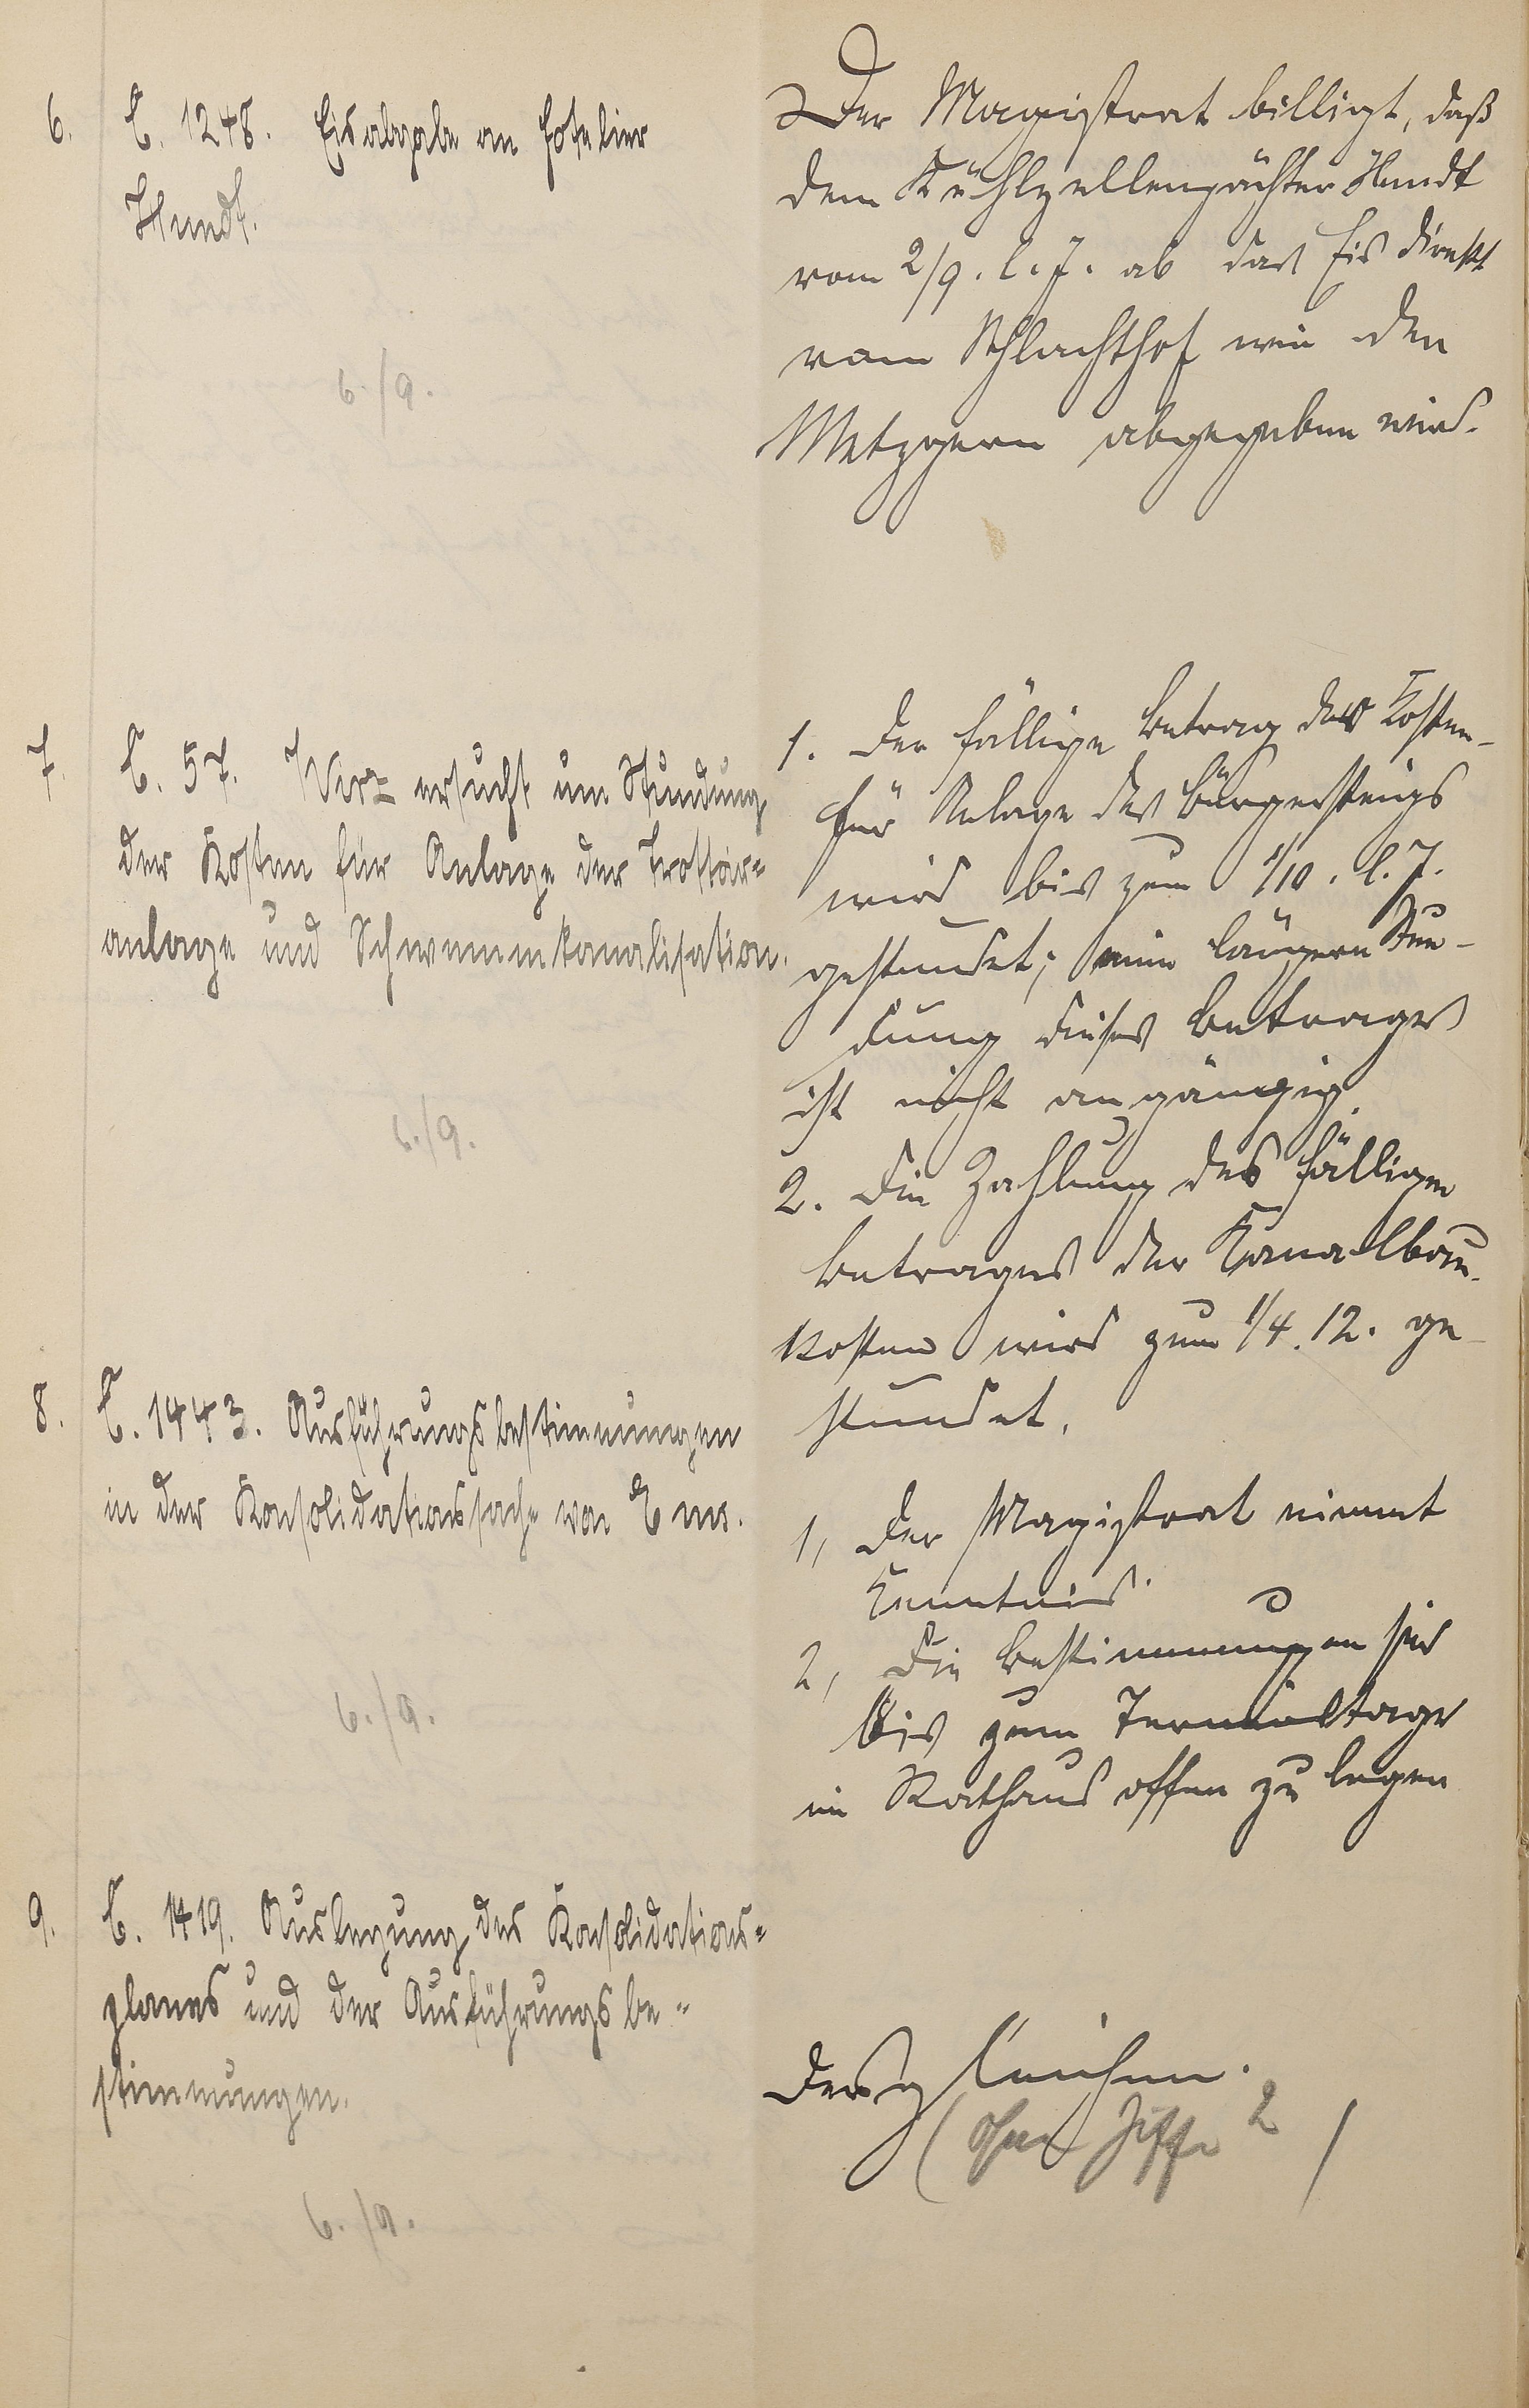 6. C. 1248. Eisabgabe an Hotelier
Hundt.
6./9.
Der Magistrat billigt, daß
dem Kühlzellenpächter Hundt
vom 2/9. l. J. ab das Eis direkt
vom Schlachthof wie den
Metzgern abgegeben wird.
7. C. 57. Wirz ersucht um Stundung
der Kosten für Anlage der Trottoir-
anlage und Schwemmkanalisation.
6./9.
1. Der fällige Betrag der Kosten
für Anlage des Bürgersteigs
wird bis zum 1/10. l. J.
gestundet; eine längere Stun-
dung dieses Betrages
ist nicht angängig.
2. Die Zahlung des fälligen
Betrages der Kanalbau-
kosten wird zum 1/4. 12. ge-
stundet.
8. C. 1443. Ausführungsbestimmungen
in der Konsolidationssache von Ems.
6./9.
1, Der Magistrat nimmt
Kenntnis.
2, Die Bestimmungen sind
bis zum Terminstage
im Rathaus offen zu legen
9. C. 1419. Auslegung des Konsolidations-
planes und der Ausführungsbe-
stimmungen.
6./9.
Desgleichen.
(ohne Ziffer 2)